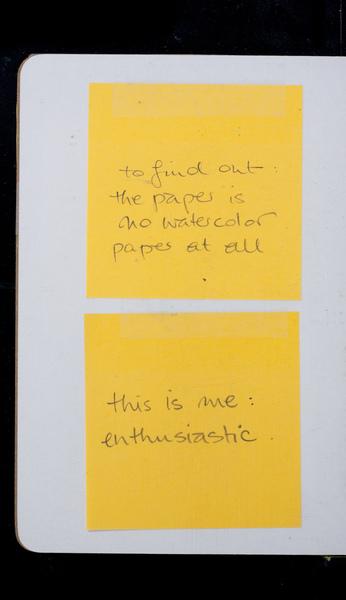 to find out:
the paper is
no watercolor
paper at all
this is me:
enthusiastic.